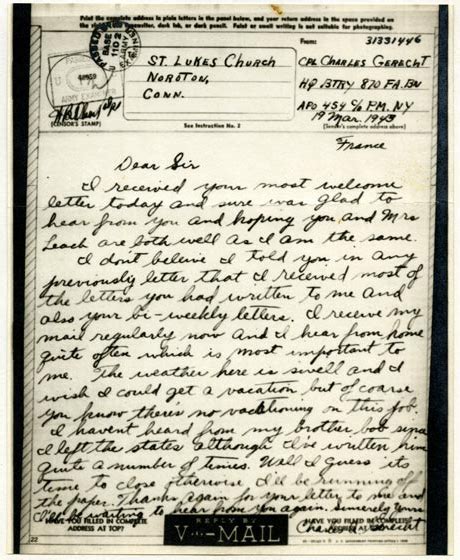 Print the complete address in plain letters in the panel below, and your return address in the space provided on the
typewriter, dark ink, or dark pencil. Faint or small writing is not suitable for photographing.
PASSED
BASE
1102
ARMY
ARMY EXAMINER
(CENSOR'S STAMP)
ST. LUKES CHURCH
NOROTON,
CONN.
See Instruction No. 2
From:
31331446
CPL CHARLES GERECHT
HQ BTRY 870 F.A. BN
APO 454 C/O P.M. NY
19 Mar. 1945
(Sender's complete address above)
France
Dear Sir
I received your most welcome
letter today and sure was glad to
hear from you and hoping you and Mrs
Leach are both well as I am the same.
I don't believe I told you in any
previously letter that I received most of
the letters you had written to me and
also your bi-weekly letters. I receive my
mail regularly now and I hear from home
quite often which is most important to
me. The weather here is swell and I
wish I could get a vacation but of coarse
you know there's no vacationing on this job.
I havent heard from my brother bob since
I left the states although I've written him
quite a number of times. Well I guess its
time to close otherwise I'll be running off
the paper. Thanks again for your letter to me and
I'll be waiting to hear from you again. Sincerely yours
Charles Gerecht
HAVE YOU FILLED IN COMPLETE
ADDRESS AT TOP?
REPLY BY
V···—MAIL
HAVE YOU FILLED IN COMPLETE
ADDRESS AT TOP?
22